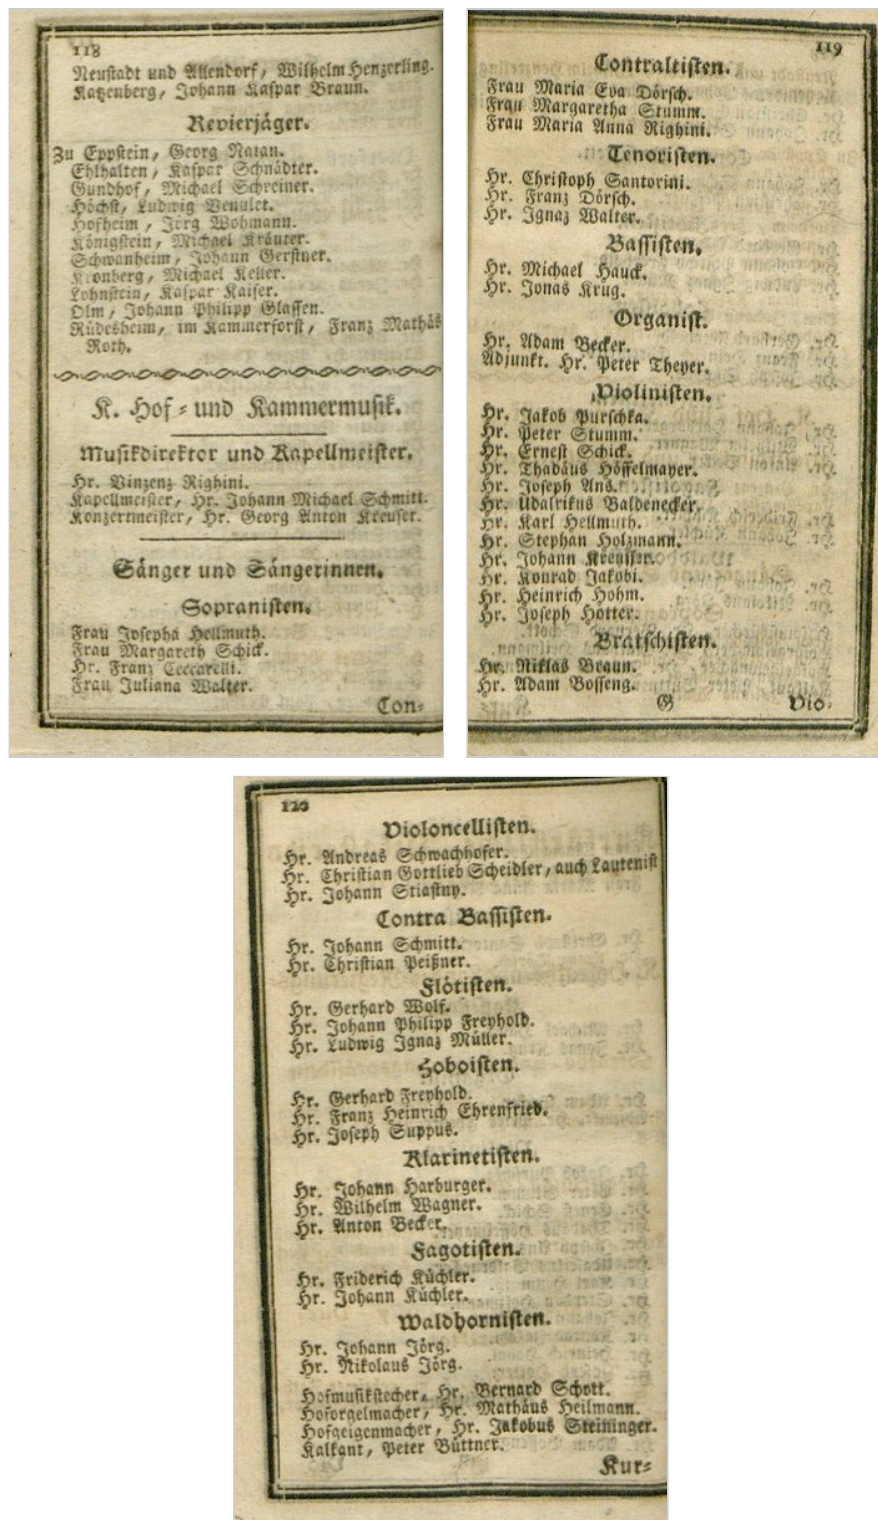 118
Neustadt und Allendorf, Wilhelm Henzerling.
Katzenberg, Johann Kaspar Braun.
Revierjäger.
Zu Eppstein, Georg Natan.
Ehlhalten, Kaspar Schnädter.
Gundhof, Michael Schreiner.
Höchst, Ludwig Venulet.
Hofheim, Jörg Wohmann.
Königstein, Michael Kräuter.
Schwanheim, Johann Gerstner.
Kronberg, Michael Keller.
Lohnstein, Kaspar Kaiser.
Olm, Johann Philipp Glassen.
Rüdesheim, im Kammerforst, Franz Mathäs
Roth.
K. Hof- und Kammermusik.
Musikdirektor und Kapellmeister.
Hr. Vinzenz Righini.
Kapellmeister, Hr. Johann Michael Schmitt.
Konzertmeister, Hr. Georg Anton Kreuser.
Sänger und Sängerinnen.
Sopranisten.
Frau Josepha Hellmuth.
Frau Margareth Schick.
Hr. Franz Ceccarelli.
Frau Juliana Walter.
Con-
119
Contraltisten.
Frau Maria Eva Dörsch.
Frau Margaretha Stumm.
Frau Maria Anna Righini.
Tenoristen.
Hr. Christoph Santorini.
Hr. Franz Dörsch.
Hr. Ignaz Walter.
Bassisten.
Hr. Michael Hauck.
Hr. Jonas Krug.
Organist.
Hr. Adam Becker.
Adjunkt. Hr. Peter Theyer.
Violinisten.
Hr. Jakob Purschka.
Hr. Peter Stumm.
Hr. Ernest Schick.
Hr. Thadäus Höffelmayer.
Hr. Joseph Ans.
Hr. Udalrikus Baldenecker.
Hr. Karl Hellmuth.
Hr. Stephan Holzmann.
Hr. Johann Kreusser.
Hr. Konrad Jakobi.
Hr. Heinrich Hohm.
Hr. Joseph Hotter.
Bratschisten.
Hr. Niklas Braun.
Hr. Adam Bosseng.
G Vio-
120
Violoncellisten.
Hr. Andreas Schwachhofer.
Hr. Christian Gottlieb Scheidler, auch Lautenist
Hr. Johann Stiastny.
Contra Bassisten.
Hr. Johann Schmitt.
Hr. Christian Peißner.
Flötisten.
Hr. Gerhard Wolf.
Hr. Johann Philipp Freyhold.
Hr. Ludwig Ignaz Müller.
Hoboisten.
Hr. Gerhard Freyhold.
Hr. Franz Heinrich Ehrenfried.
Hr. Joseph Suppus.
Klarinetisten.
Hr. Johann Harburger.
Hr. Wilhelm Wagner.
Hr. Anton Becker.
Fagotisten.
Hr. Friderich Küchler.
Hr. Johann Küchler.
Waldhornisten.
Hr. Johann Jörg.
Hr. Nikolaus Jörg.
Hofmusikstecher, Hr. Bernard Schott.
Hoforgelmacher, Hr. Mathäus Heilmann.
Hofgeigenmacher, Hr. Jakobus Steininger.
Kalkant, Peter Büttner.
Kur-